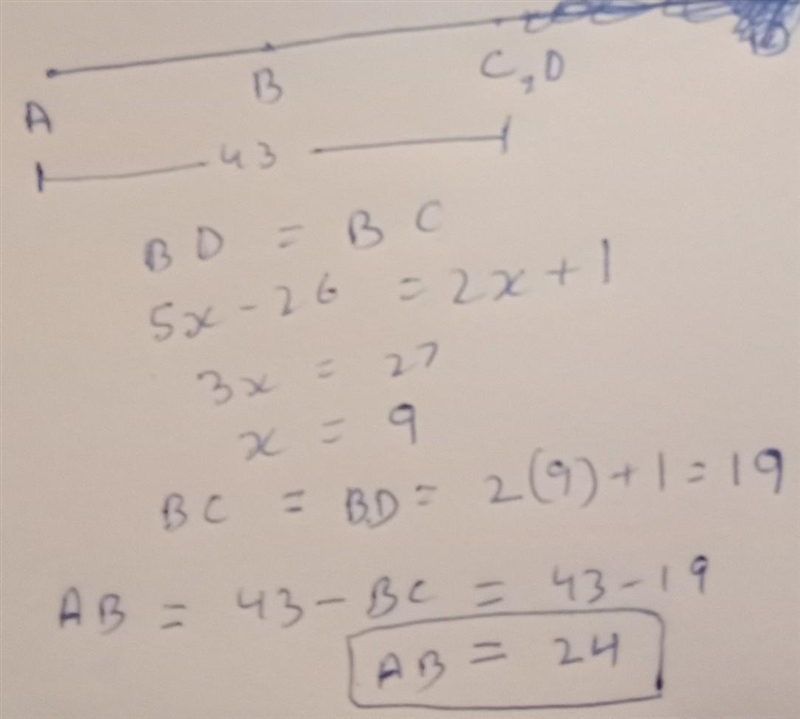 A B C, D
43
BD = BC
5x - 26 = 2x + 1
3x = 27
x = 9
BC = BD = 2(9) + 1 = 19
AB = 43 - BC = 43 - 19
AB = 24